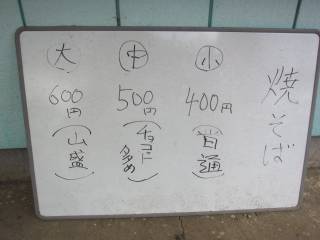 焼そば
小 400円 (普通)
中 500円 (チョット多め)
大 600円 (山盛)